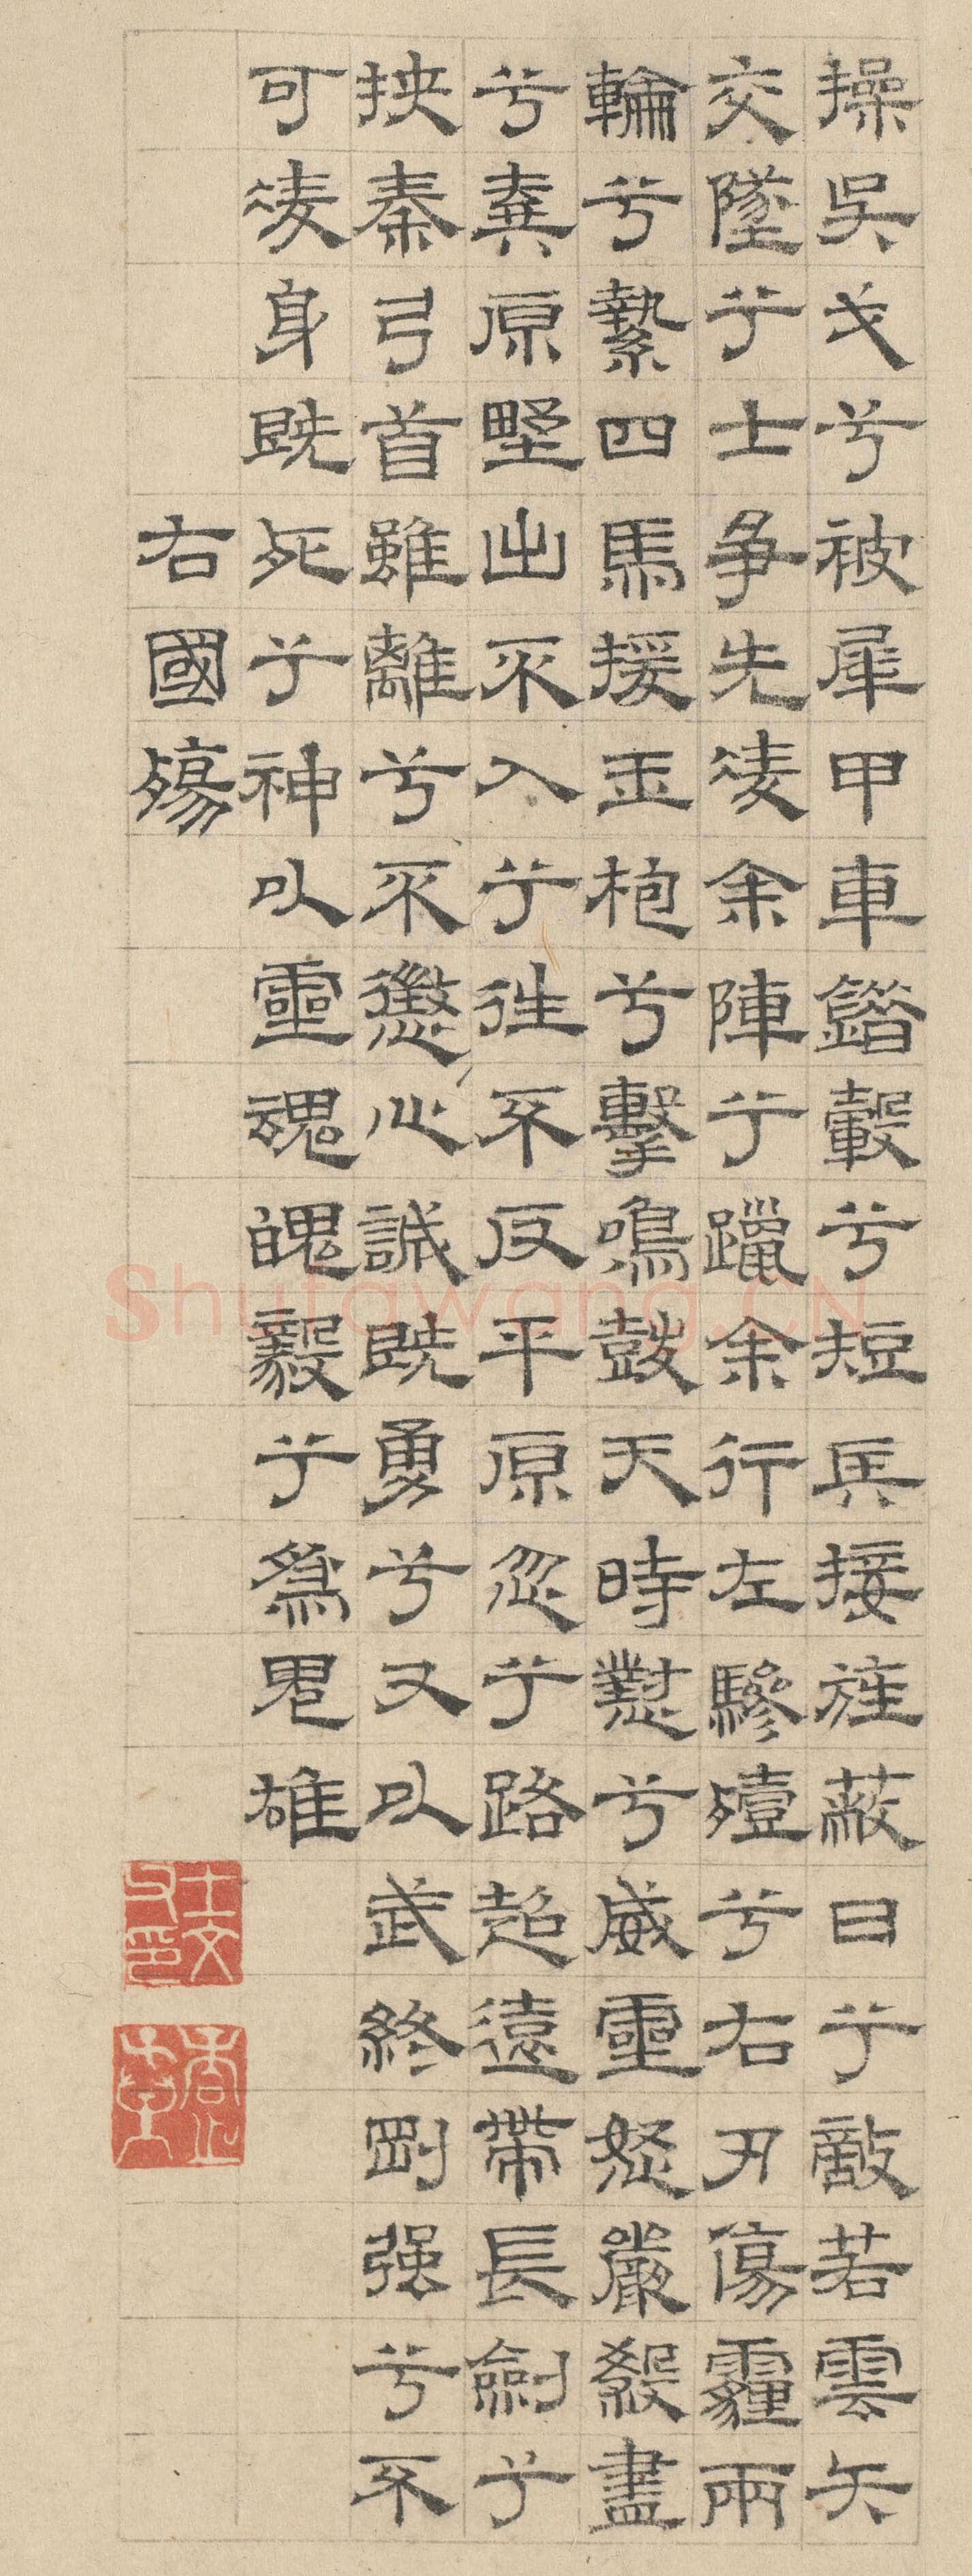 操吳戈兮被犀甲車錯轂兮短兵接旌蔽日兮敵若雲矢
交墜兮士争先凌余陣兮躐余行左驂殪兮右刃傷霾兩
輪兮縶四馬援玉枹兮擊鳴鼓天時懟兮威靈怒嚴殺盡
兮棄原墅出不入兮往不反平原忽兮路超遠帶長劍兮
挾秦弓首雖離兮不懲心誠既勇兮又以武終剛强兮不
可凌身既死兮神以靈魂魄毅兮為鬼雄
右國殤
Shufawang.CN